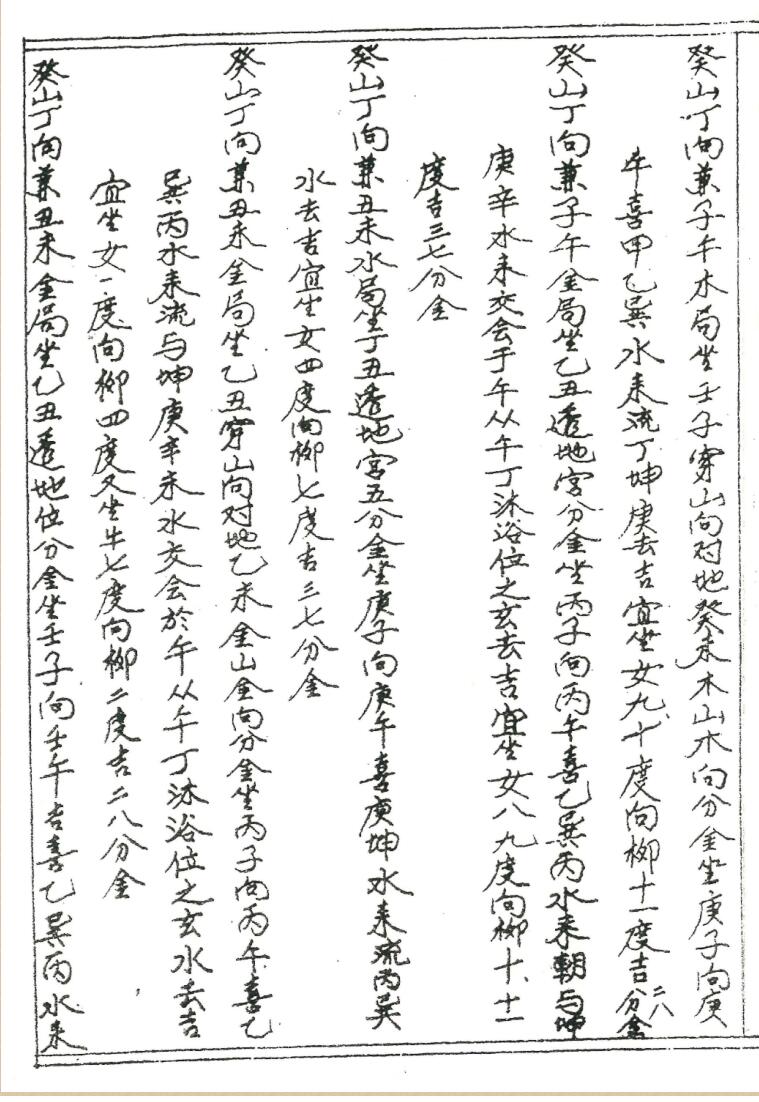 癸山丁向兼子午木局坐壬子穿山向对地癸未木山木向分金坐庚子向庚
午喜甲乙巽水来流丁坤庚去吉宜坐女九、十度向柳十一度吉二八分金
癸山丁向兼子午金局坐乙丑透地宫分金坐丙子向丙午喜乙巽丙水来朝与坤
庚辛水来交会于午从午丁沐浴位之玄去吉宜坐女八九度向柳十、十一
度吉三七分金
癸山丁向兼丑未水局坐丁丑透地宫五分金坐庚子向庚午喜庚坤水来流丙巽
水去吉宜坐女四度向柳七度吉三七分金
癸山丁向兼丑未金局坐乙丑穿山向对地乙未金山金向分金坐丙子向丙午喜乙
巽丙水来流与坤庚辛来水交会於午从午丁沐浴位之玄水去吉
宜坐女一度向柳四度又坐牛七度向柳二度吉二八分金
癸山丁向兼丑未金局坐乙丑透地位分金坐壬子向壬午吉喜乙巽丙水来